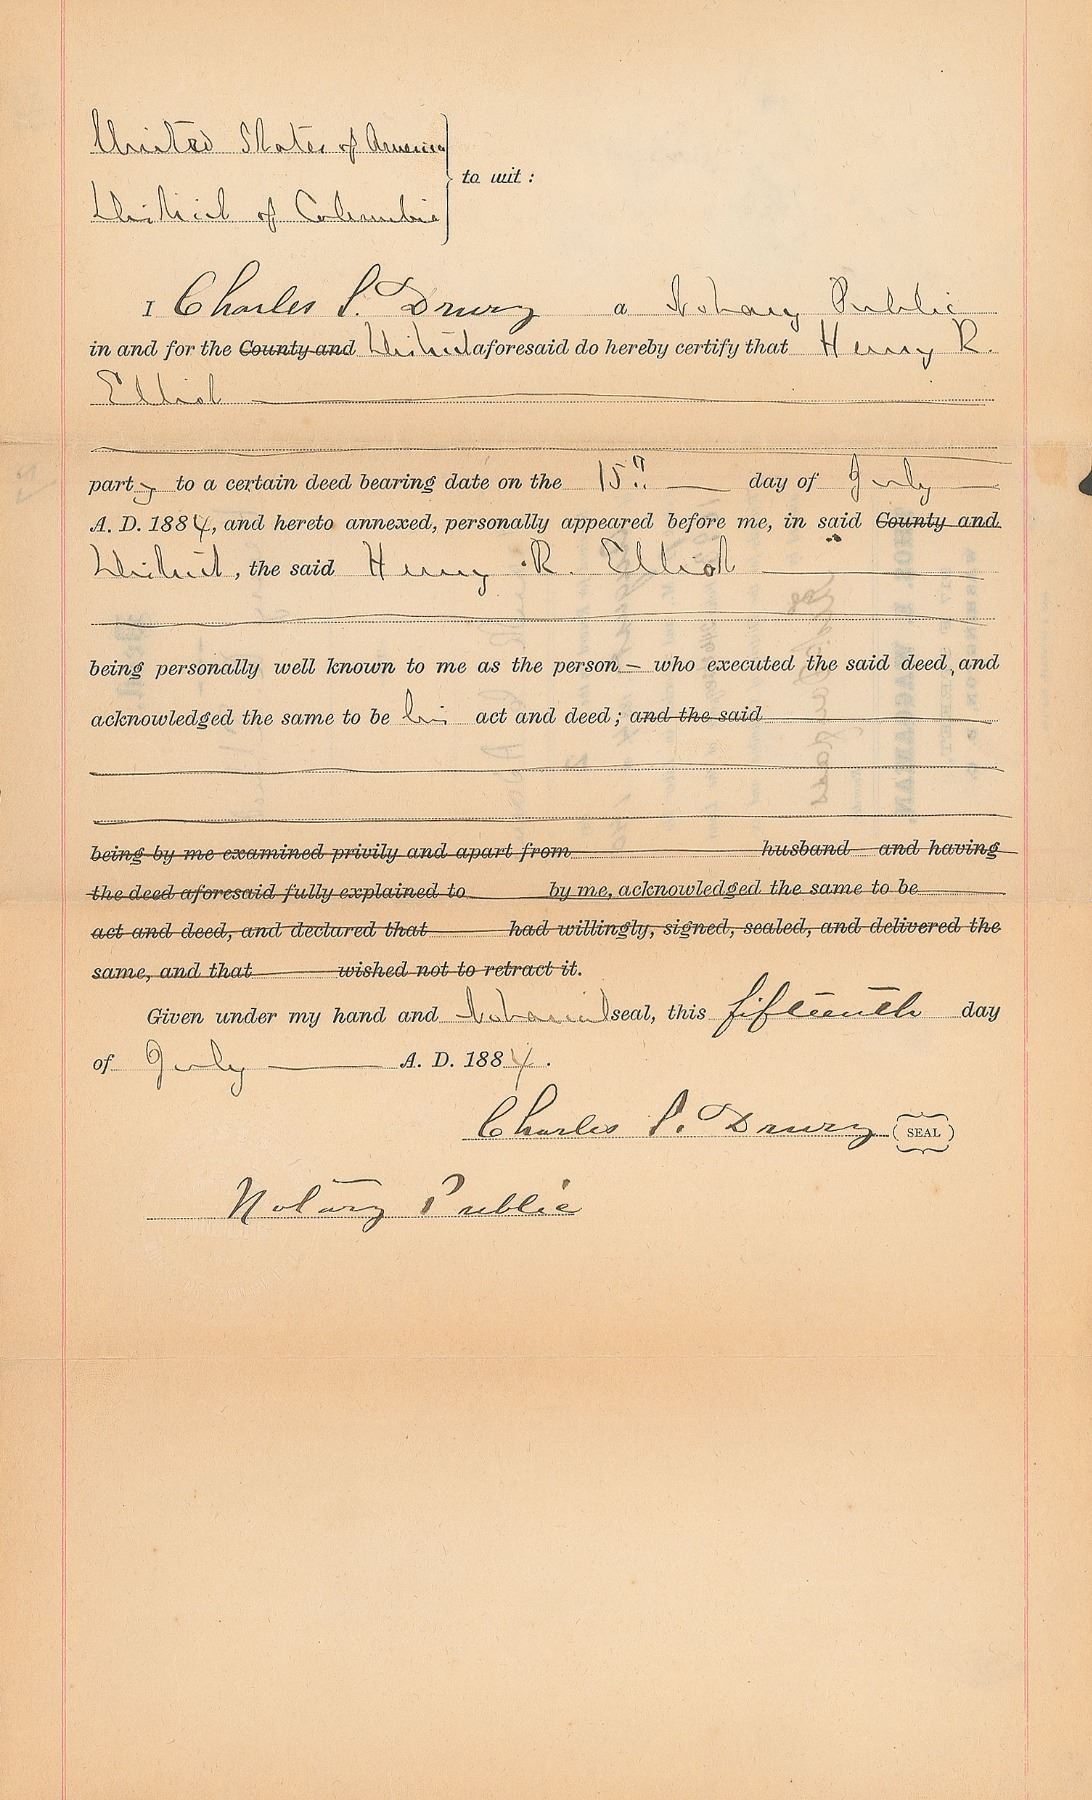 United States of America
to wit:
District of Columbia
I Charles S. Drury a Notary Public
in and for the County and District aforesaid do hereby certify that Henry R.
Elliot
party to a certain deed bearing date on the 15th day of July
A. D. 1884, and hereto annexed, personally appeared before me, in said County and
District, the said Henry R. Elliot
being personally well known to me as the person – who executed the said deed, and
acknowledged the same to be his act and deed; and the said
being by me examined privily and apart from husband and having
the deed aforesaid fully explained to by me, acknowledged the same to be
act and deed, and declared that had willingly, signed, sealed, and delivered the
same, and that wished not to retract it.
Given under my hand and Notarial seal, this fifteenth day
of July A. D. 1884.
Charles S. Drury SEAL
Notary Public